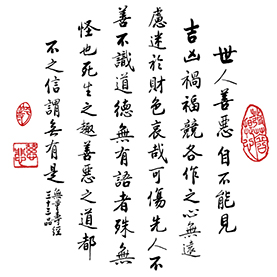 世人善惡自不能見
吉凶禍福競各作之心無遠
慮迷於財色哀哉可傷先人不
善不識道德無有語者殊無
怪也死生之趣善惡之道都
不之信謂無有是
無量壽經
三十三品